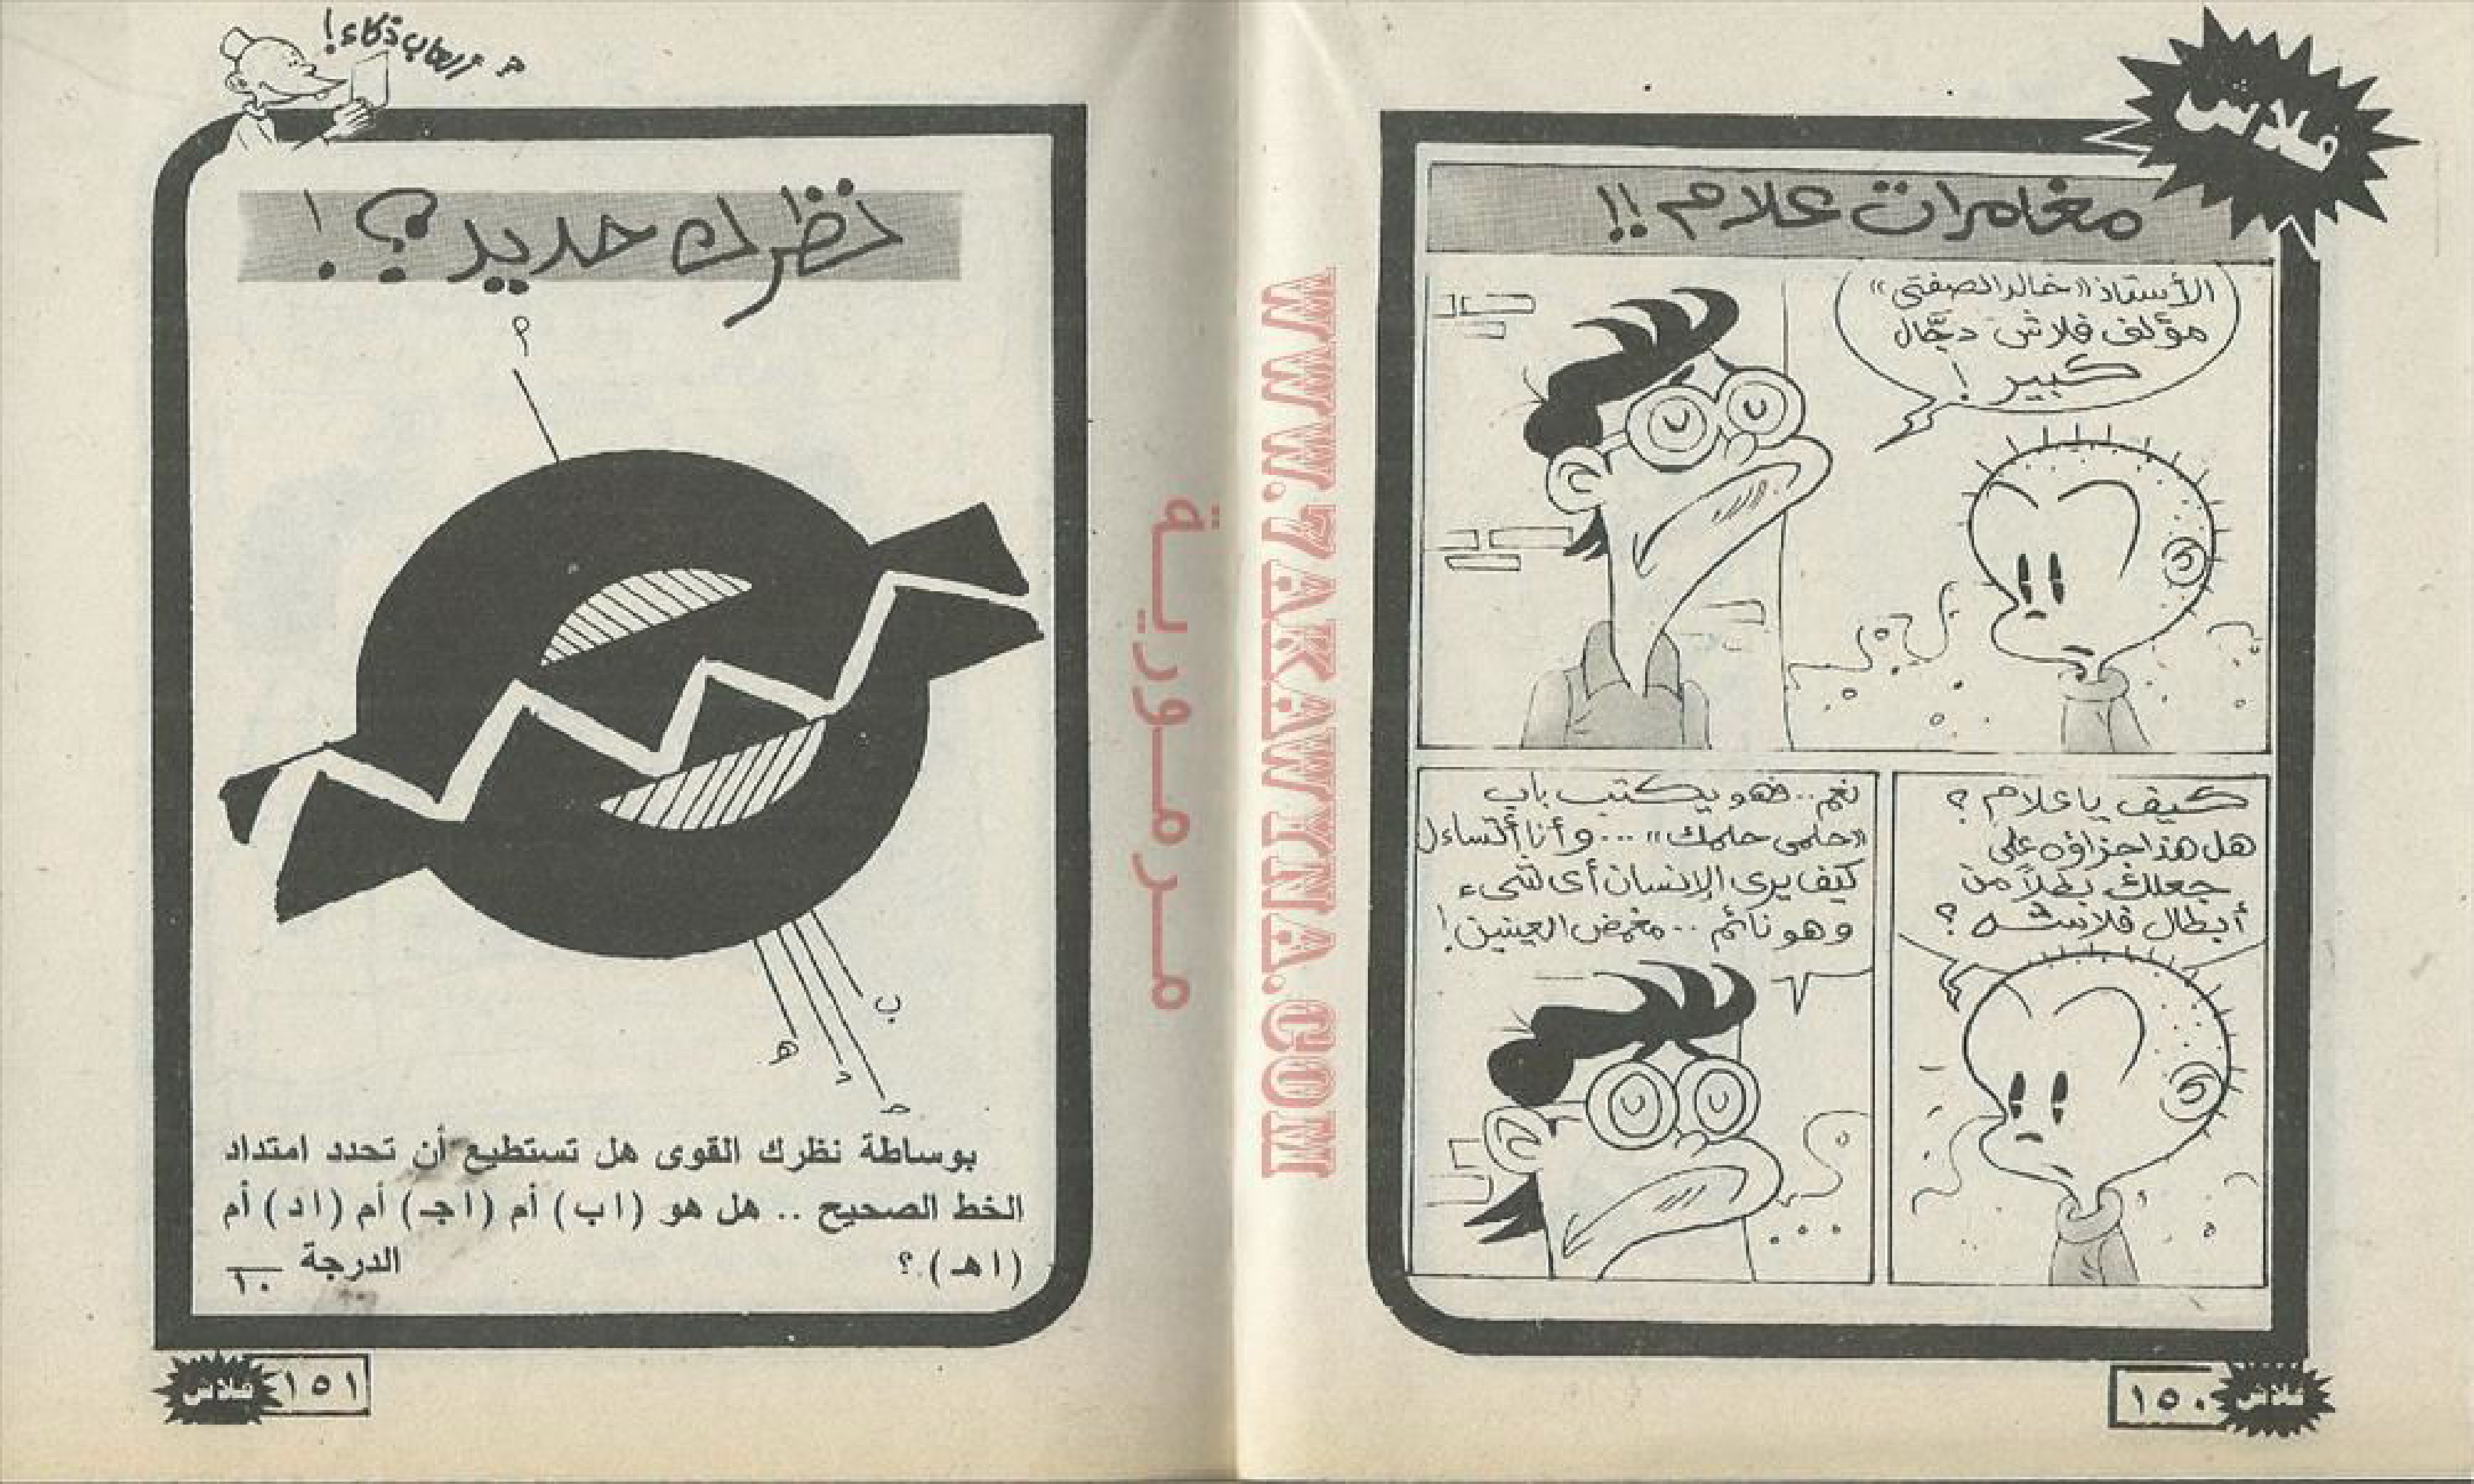 فلاش
مغامرات علام !!
الأستاذ «خالد الصفتى»
مؤلف فلاش دجَّال
كبير !
كيف ياعلام ؟
هل هذا جزاؤه على
جعلك بطلاً من
أبطال فلاشه ؟
نعم .. فهو يكتب باب
«حلمى حلمك» ... وأنا أتساءل
كيف يرى الإنسان أى شىء
وهو نائم .. مغمض العينين !
فلاش
١٥٠
WWW.7AKAWINA.COM
مرمورية
ألعاب ذكاء !
نظرك حديد ؟ !
ب
هـ
د
حـ
بوساطة نظرك القوى هل تستطيع أن تحدد امتداد
الخط الصحيح .. هل هو ( ا ب ) أم ( ا جـ ) أم ( ا د ) أم
( ا هـ ) ؟
الدرجة ١٠
١٥١
فلاش